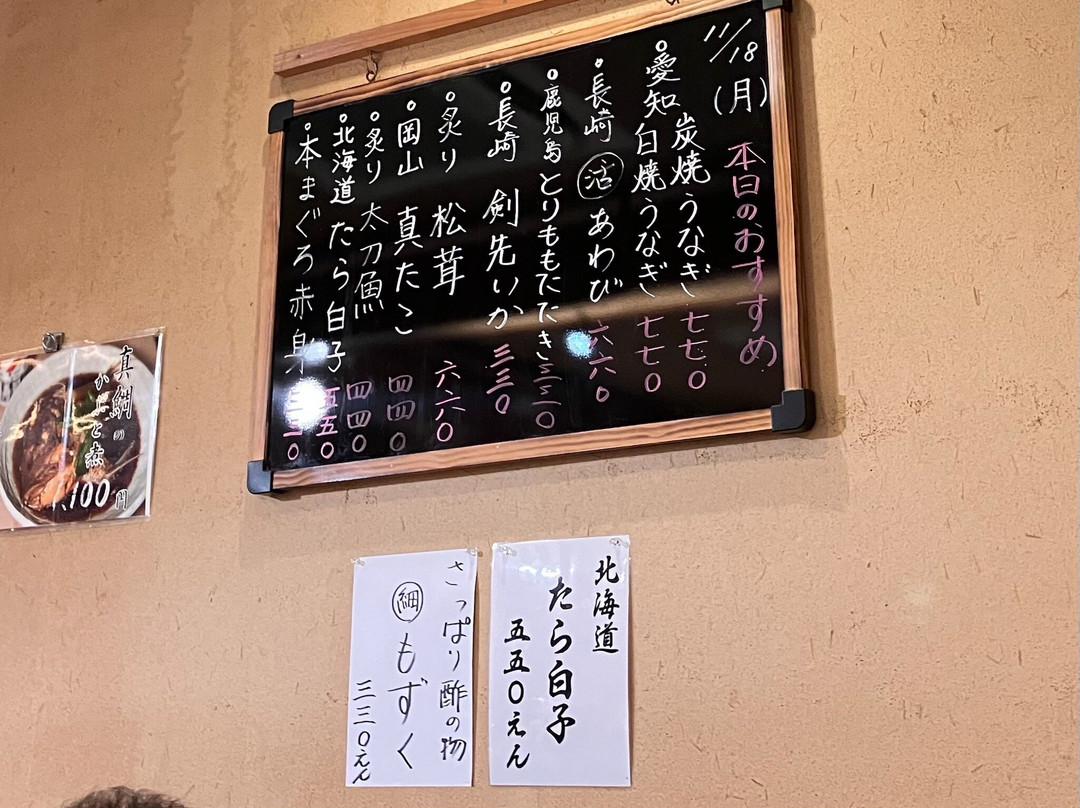 11/18(月)
本日のおすすめ
炭焼うなぎ 七七〇
愛知 白焼うなぎ 七七〇
長崎 活 あわび 六六〇
鹿児島 とりももたたき
長崎 剣先いか 三三〇
炙り 松茸 六六〇
岡山 真たこ 四四〇
炙り 太刀魚 四四〇
北海道 たら白子 五五〇
本まぐろ赤身
北海道
たら白子
五五〇えん
さっぱり酢の物
細 もずく
三三〇えん
真鯛の
かぶと煮
1,100円